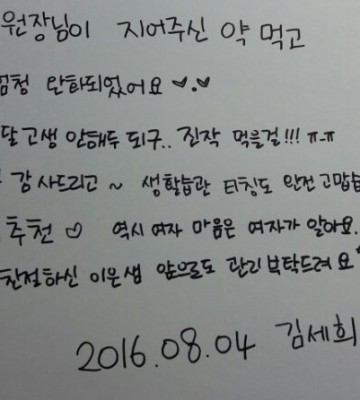 원장님이 지어주신 약 먹고
엄청 완화되었어요 ♥.♥
달 고생 안해두 되구.. 진작 먹을걸!!! ㅠ-ㅠ
감사드리고 ~ 생활습관 티칭도 완전 고맙습
추천 ♡ 역시 여자 마음은 여자가 알아요.
친절하신 이은쌤 앞으로도 관리 부탁드려요
2016.08.04 김세희